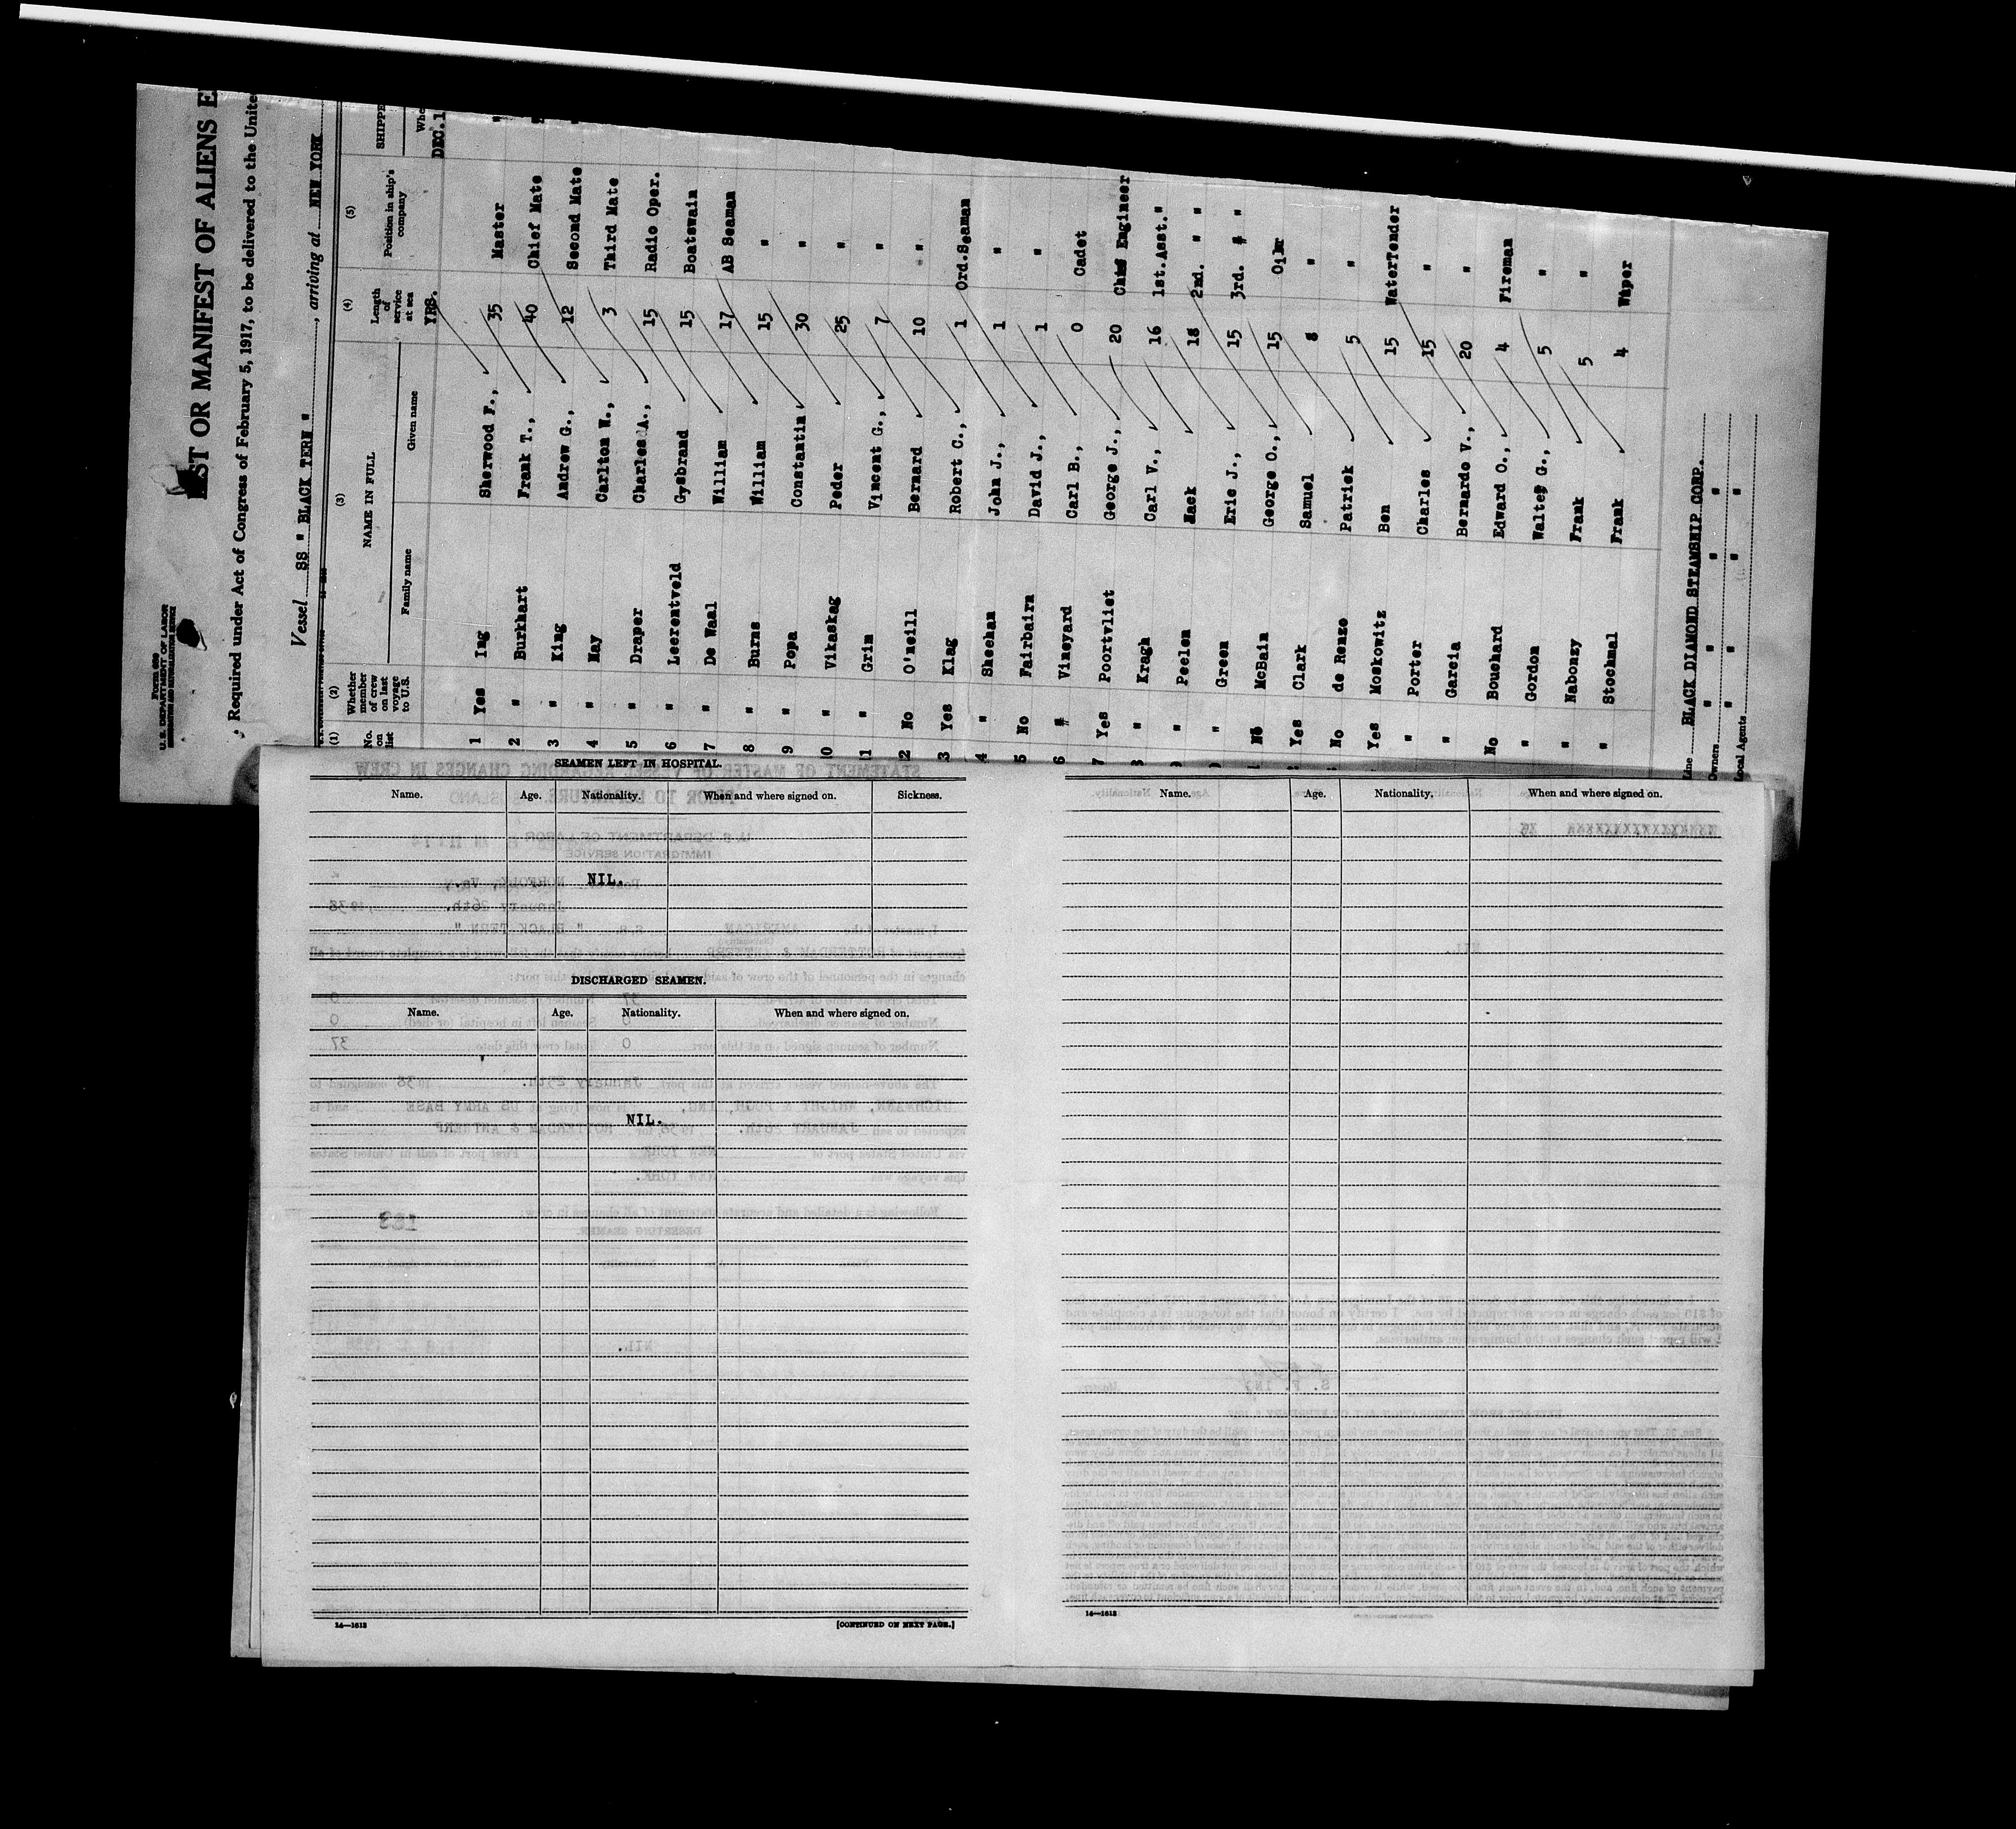 Form 689
U. S. DEPARTMENT OF LABOR
IMMIGRATION AND NATURALIZATION SERVICE
ST OR MANIFEST OF ALIENS E
Required under Act of Congress of February 5, 1917, to be delivered to the Unite
Vessel SS " BLACK TERN ", arriving at NEW YORK
(1) (2) (3) (4) (5)
No. on list Whether member of crew on last voyage to U.S. NAME IN FULL Family name Given name Length of service at sea Position in ship's company SHIPPE Whe
YRS. DEC.1
1 Yes Ing Sherwood F., 35 Master "
2 " Burkhart Frank T., 40 Chief Mate
3 " King Andrew G., 12 Second Mate "
4 " May Carlton W., 3 Third Mate
5 " Draper Charles A., 15 Radio Oper.
6 " Leerentveld Gysbrand 15 Boatswain
7 " De Waal William 17 AB Seaman
8 " Burns William 15 "
9 " Popa Constantin 30 "
10 " Vikaskag Peder 25 "
11 " Grim Vincent G., 7 "
2 No O'neill Bernard 10 "
3 Yes Klag Robert C., 1 Ord.Seaman
4 " Sheehan John J., 1 "
5 No Fairbairn David J., 1 "
6 " Vineyard Carl B., 0 Cadet
7 Yes Poortvliet George J., 20 Engineer
8 " Kragh Carl V., 16 1st.Asst."
9 " Peelen Jack 18 2nd. " "
0 " Green Eric J., 15 3rd. " "
1 No McBain George O., 15 Oiler
Yes Clark Samuel 8 "
No de Renzo Patrick 5 "
Yes Moskowitz Ben 15 WaterTender
" Porter Charles 15 "
" Garcia Bernardo V., 20 "
No Bouchard Edward O., 4 Fireman
" Gordon Walter G., 5 "
" Nabonzy Frank 5 "
" Stochmal Frank 4 Wiper
Line BLACK DIAMOND STEAMSHIP CORP.
Owners " " " "
Local Agents " " " "
SEAMEN LEFT IN HOSPITAL.
Name. Age. Nationality. When and where signed on. Sickness.
NIL.
DISCHARGED SEAMEN.
Name. Age. Nationality. When and where signed on.
NIL.
14—1613 [CONTINUED ON NEXT PAGE.]
Name. Age. Nationality. When and where signed on.
14—1613